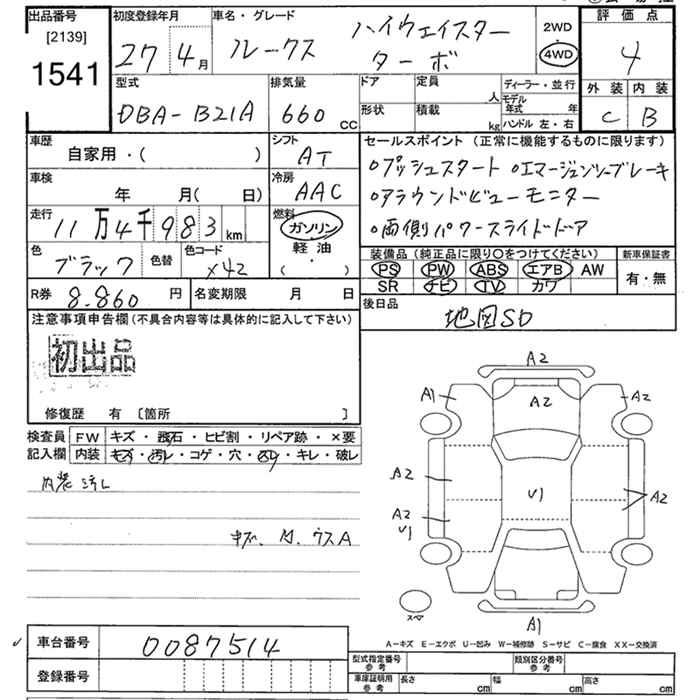 出品番号
[2139]
1541
初度登録年月
27 4月
車名・グレード
ルークス ハイウェイスター
ターボ
2WD
4WD
評価点
4
外装 内装
C B
型式
DBA-B21A
排気量
660 CC
ドア 定員 人
形状 積載 kg
ディーラー・並行
モデル年式 年
ハンドル 左・右
車歴
自家用・( )
シフト
AT
車検
年 月( 日)
冷房
AAC
走行
11万4千983 km
燃料
ガソリン
軽油
( ・ )
色
ブラック
色替
色コード
X42
R券
8.860 円
名変期限 月 日
セールスポイント (正常に機能するものに限ります)
○プッシュスタート ○エマージェンシーブレーキ
○アラウンドビューモニター
○両側パワースライドドア
装備品 (純正品に限り○をつけてください)
PS PW ABS エアB AW
SR ナビ TV カワ
新車保証書
有・無
後日品
地図SD
注意事項申告欄 (不具合内容等は具体的に記入して下さい)
初出品
修復歴 有 〔箇所 〕
検査員 FW キズ・飛石・ヒビ割・リペア跡・×要
記入欄 内装 キズ・汚レ・コゲ・穴・スレ・キレ・破レ
内装汚レ
キズ、凹、ウスA
A2
A1 A2 A2
A2
A2 U1 A2
U1
A1
スペア
A-キズ E-エクボ U-凹み W-補修跡 S-サビ C-腐食 XX-交換済
車台番号
0087514
登録番号
型式指定番号 参考
類別区分番号 参考
車庫証明用 参考
長さ cm 幅 cm 高さ cm